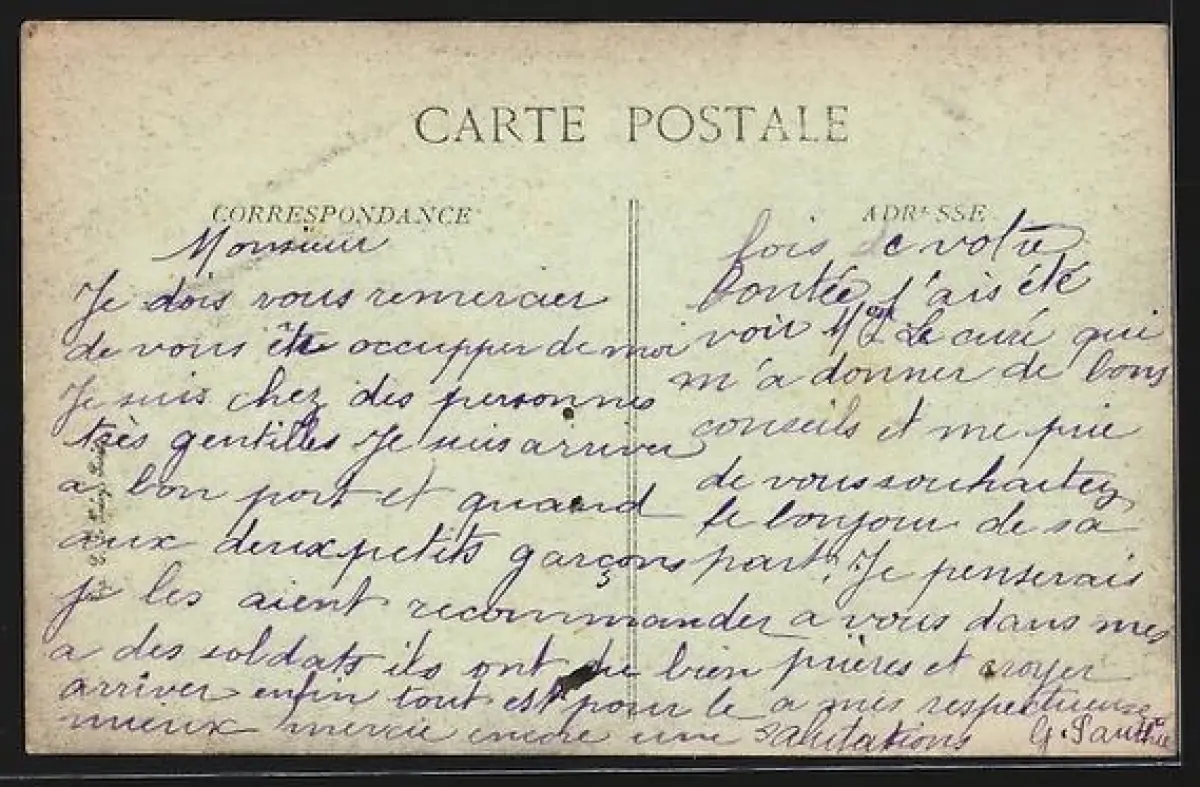 CARTE POSTALE
CORRESPONDANCE
Monsieur
Je dois vous remercier
de vous être occupper de moi
Je suis chez des personnes
très gentilles Je suis arriver
a bon port et quand
aux deux petits garçons
je les aient recommander
a des soldats ils ont du bien
arriver enfin tout est pour le
mieux mercie encore une
ADRESSE
fois de votre
bontée j'ais été
voir Le curé qui
m'a donner de bons
conseils et me prie
de vous souhaitez
le bonjour de sa
part. Je penserais
a vous dans mes
prières et croyer
a mes respectueuse
salutations G.